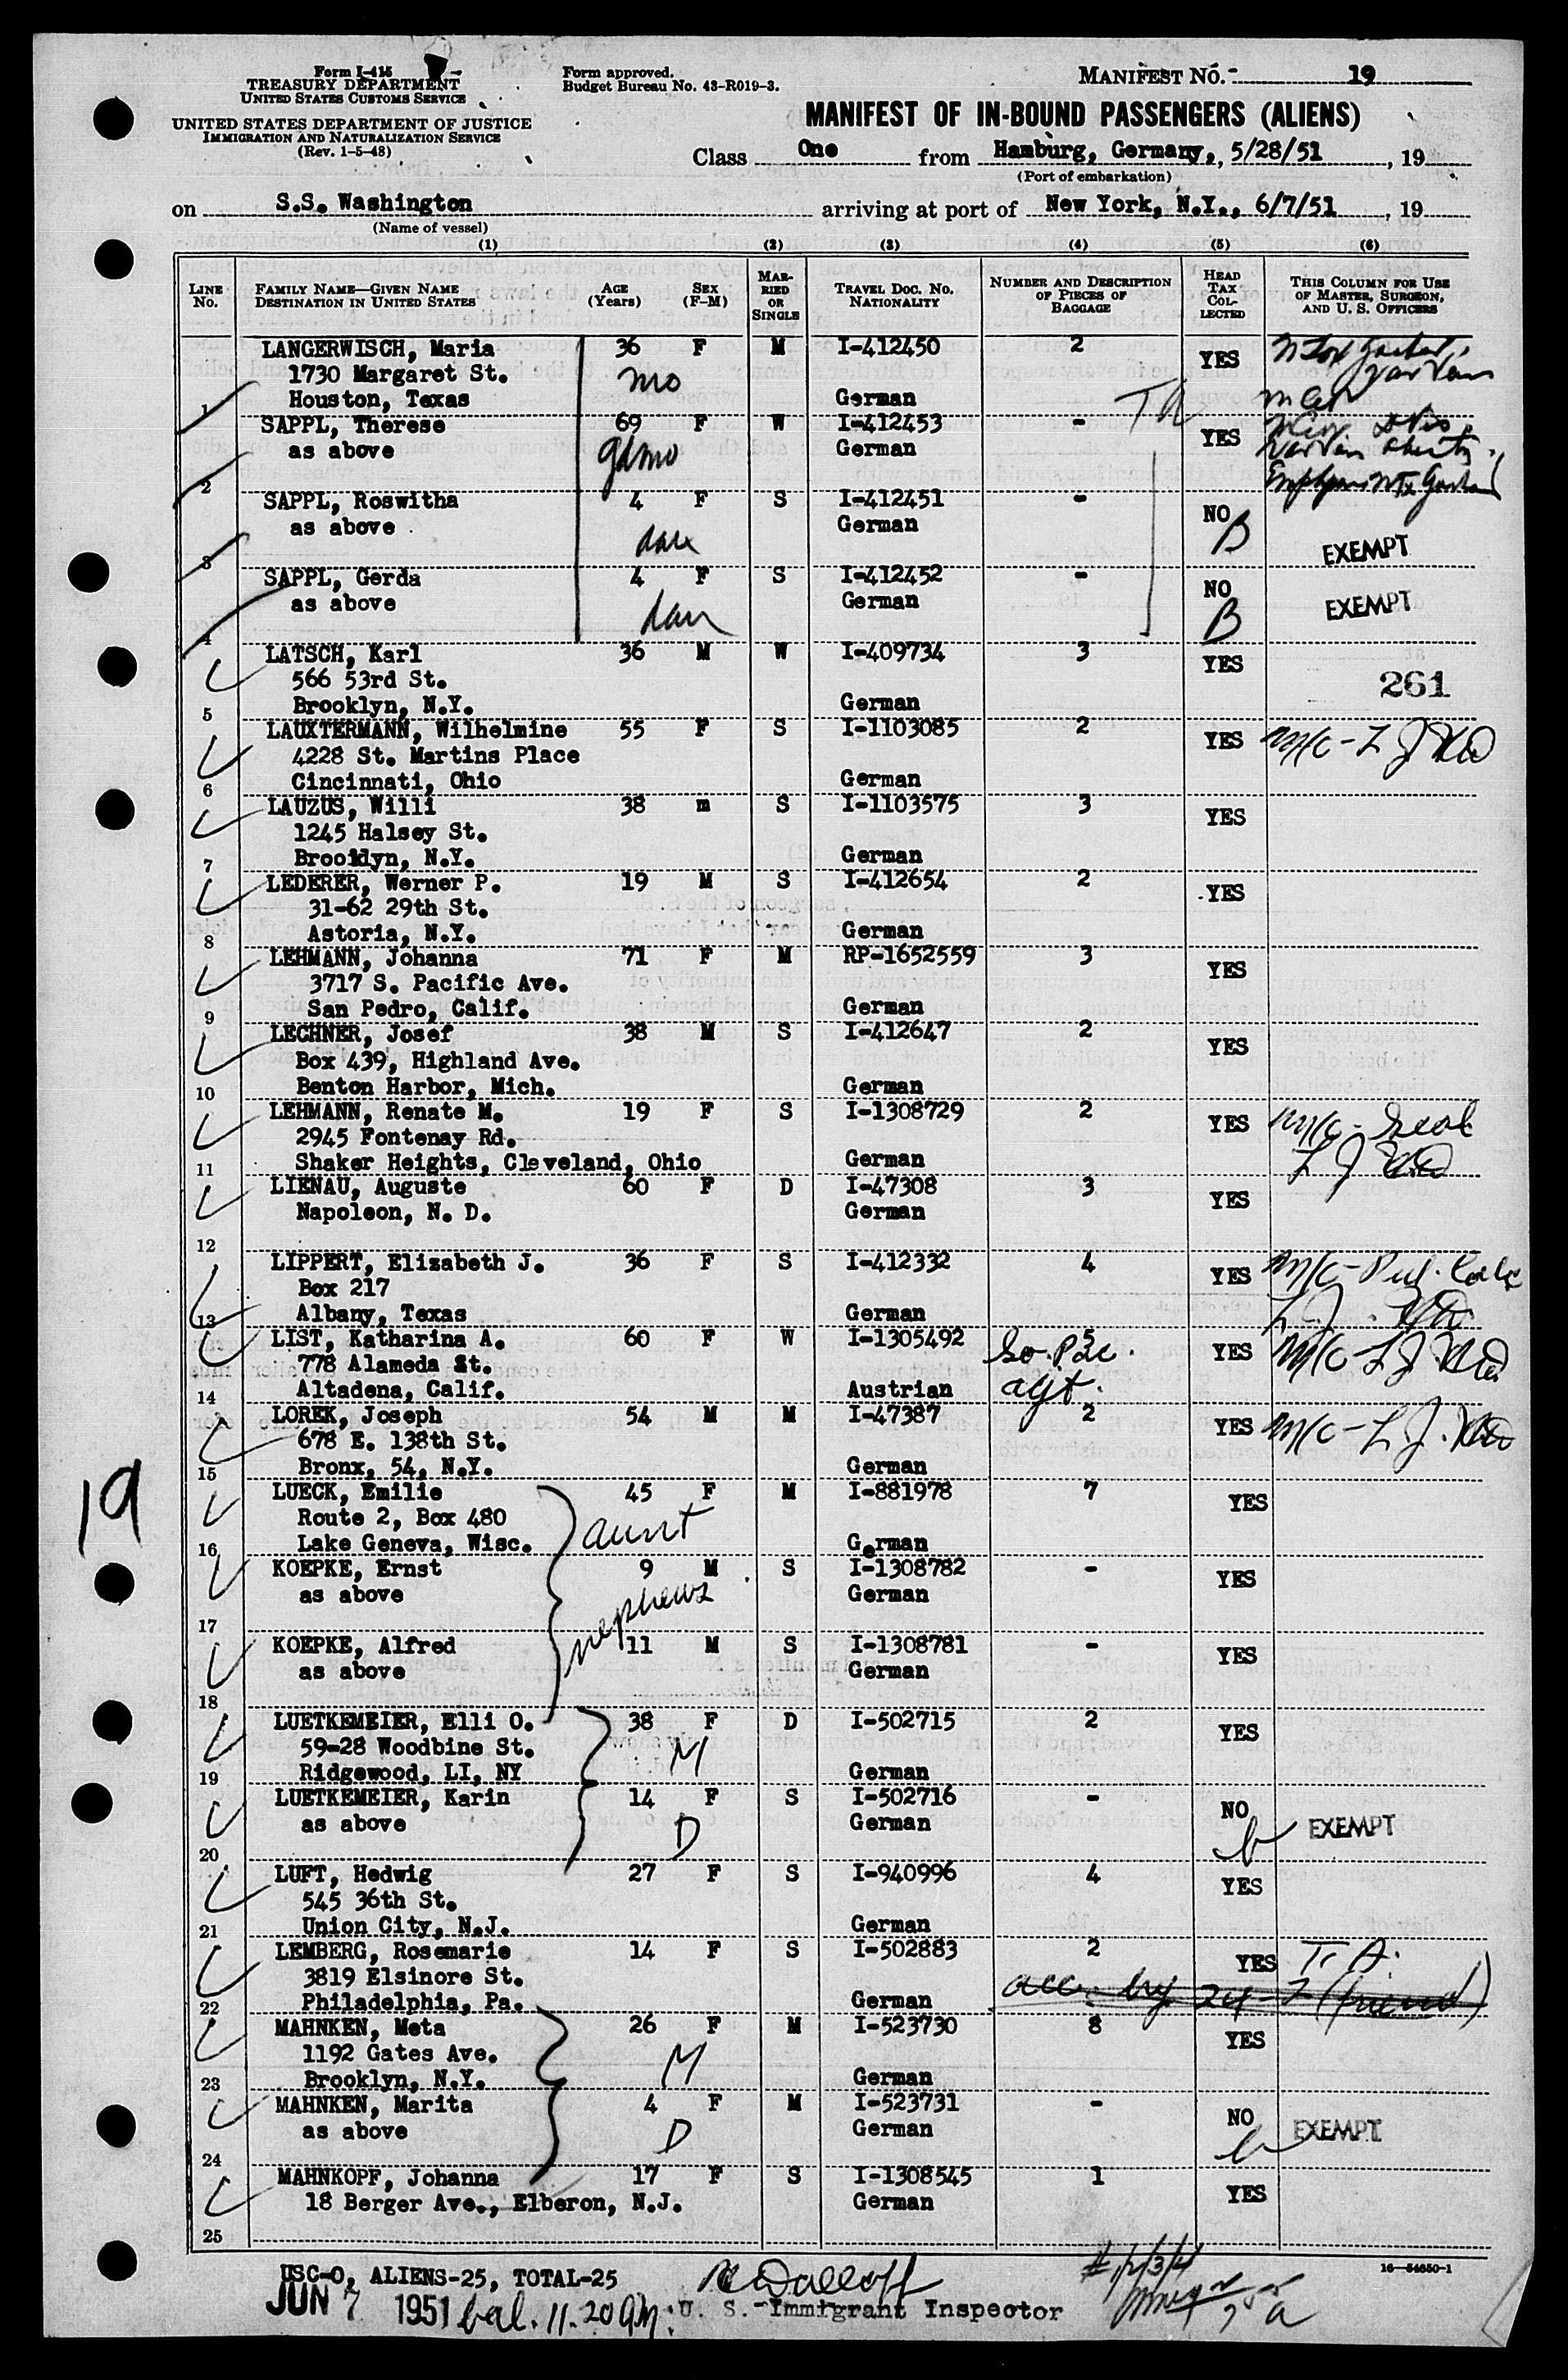 Form I-415
TREASURY DEPARTMENT
UNITED STATES CUSTOMS SERVICE
UNITED STATES DEPARTMENT OF JUSTICE
IMMIGRATION AND NATURALIZATION SERVICE
(Rev. 1-5-48)
Form approved.
Budget Bureau No. 43-R019-3.
MANIFEST NO. 19
MANIFEST OF IN-BOUND PASSENGERS (ALIENS)
Class One from Hamburg, Germany, 5/28/51, 19
(Port of embarkation)
on S.S. Washington arriving at port of New York, N.Y., 6/7/51, 19
(Name of vessel)
(1) (2) (3) (4) (5) (6)
LINE No. FAMILY NAME—GIVEN NAME DESTINATION IN UNITED STATES AGE (Years) SEX (F-M) MARRIED OR SINGLE TRAVEL DOC. NO. NATIONALITY NUMBER AND DESCRIPTION OF PIECES OF BAGGAGE HEAD TAX COLLECTED THIS COLUMN FOR USE OF MASTER, SURGEON, AND U. S. OFFICERS
LANGERWISCH, Maria 36 F M I-412450 2 YES
1730 Margaret St. mo
1 Houston, Texas German
SAPPL, Therese 69 F W I-412453 - YES
as above gdmo German
2
SAPPL, Roswitha 4 F S I-412451 - NO
as above German B EXEMPT
3 dau
SAPPL, Gerda 4 F S I-412452 - NO
as above dau German B EXEMPT
4
LATSCH, Karl 36 M W I-409734 3 YES
566 53rd St. 261
5 Brooklyn, N.Y. German
LAUXTERMANN, Wilhelmine 55 F S I-1103085 2 YES
4228 St. Martins Place
6 Cincinnati, Ohio German
LAUZUS, Willi 38 m S I-1103575 3 YES
1245 Halsey St.
7 Brooidyn, N.Y. German
LEDERER, Werner P. 19 M S I-412654 2 YES
31-62 29th St.
8 Astoria, N.Y. German
LEHMANN, Johanna 71 F M RP-1652559 3 YES
3717 S. Pacific Ave.
9 San Pedro, Calif. German
LECHNER, Josef 38 M S I-412647 2 YES
Box 439, Highland Ave.
10 Benton Harbor, Mich. German
LEHMANN, Renate M. 19 F S I-1308729 2 YES
2945 Fontenay Rd.
11 Shaker Heights, Cleveland, Ohio German
LIENAU, Auguste 60 F D I-47308 3 YES
Napoleon, N. D. German
12
LIPPERT, Elizabeth J. 36 F S I-412332 4 YES
Box 217
13 Albany, Texas German
LIST, Katharina A. 60 F W I-1305492 5 YES
778 Alameda St. So. Pac.
14 Altadena, Calif. Austrian agt.
LOREK, Joseph 54 M M I-47387 2 YES
678 E. 138th St.
15 Bronx, 54, N.Y. German
19
LUECK, Emilie 45 F M I-881978 7 YES
Route 2, Box 480 aunt
16 Lake Geneva, Wisc. German
KOEPKE, Ernst 9 M S I-1308782 - YES
as above nephews German
17
KOEPKE, Alfred 11 M S I-1308781 - YES
as above German
18
LUETKEMEIER, Elli O. 38 F D I-502715 2 YES
59-28 Woodbine St. M
19 Ridgewood, LI, NY German
LUETKEMEIER, Karin 14 F S I-502716 - NO
as above D German b EXEMPT
20
LUFT, Hedwig 27 F S I-940996 4 YES
545 36th St.
21 Union City, N.J. German
LEMBERG, Rosemarie 14 F S I-502883 2 YES T. A.
3819 Elsinore St. acc. by 24-7 (friend)
22 Philadelphia, Pa. German
MAHNKEN, Meta 26 F M I-523730 8 YES
1192 Gates Ave. M
23 Brooklyn, N.Y. German
MAHNKEN, Marita 4 F M I-523731 - NO
as above D German b EXEMPT
24
MAHNKOPF, Johanna 17 F S I-1308545 1 YES
18 Berger Ave., Elberon, N.J. German
25
16-54650-1
USC-0, ALIENS-25, TOTAL-25
JUN 7 1951 bal. 11.20 am. U. S. Immigrant Inspector
# 1/2/3/4